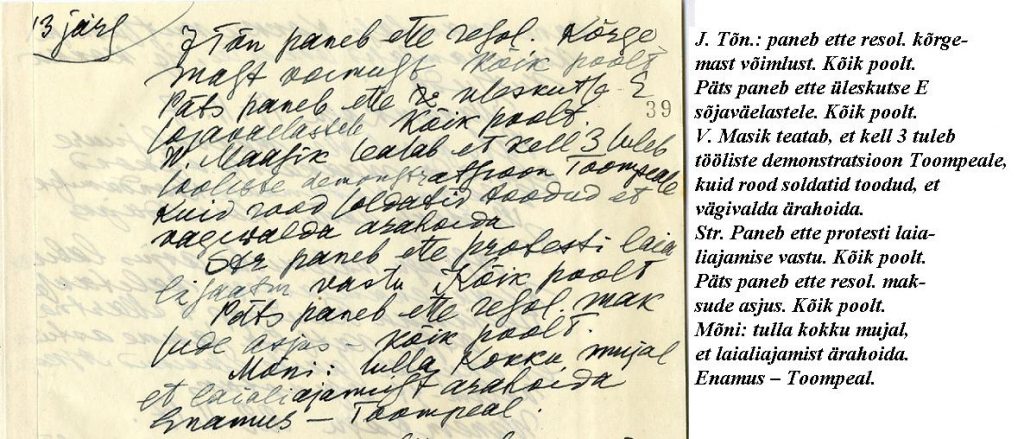 13 järg
J Tõn paneb ette resol. Kõrge
mast voimust Kõik poolt
Päts paneb ette üleskutse E
39
sojavaelastele Kõik poolt.
V. Maasik teatab et kell 3 tuleb
tooliste demonstratsioon Toompeale
Kuid rood soldatid toodud et
vagivalda arahoida
Str paneb ette protesti laia
liajamise vastu Kõik poolt
Päts paneb ette resol. mak
sude asjus – Kõik poolt.
Mõni: tulla kokku mujal
et laialiajamist arahoida
Enamus – Toompeal.
J. Tõn.: paneb ette resol. kõrge-
mast võimlust. Kõik poolt.
Päts paneb ette üleskutse E
sõjaväelastele. Kõik poolt.
V. Masik teatab, et kell 3 tuleb
tööliste demonstratsioon Toompeale,
kuid rood soldatid toodud, et
vägivalda ärahoida.
Str. Paneb ette protesti laia-
liajamise vastu. Kõik poolt.
Päts paneb ette resol. mak-
sude asjus. Kõik poolt.
Mõni: tulla kokku mujal,
et laialiajamist ärahoida.
Enamus – Toompeal.